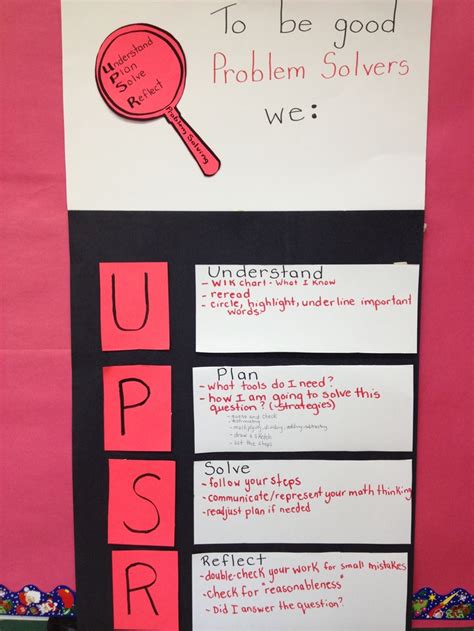 To be good
Problem Solvers
we:
Understand
Plan
Solve
Reflect
Problem Solving
U
Understand
- WIK chart - What I Know
- reread
- circle, highlight, underline important
words
P
Plan
- What tools do I need?
- how I am going to solve this
question? (strategies)
- guess and check
- estimating
- multiplying, dividing, adding, subtracting
- draw a sketch
- list the steps
S
Solve
- follow your steps
- communicate/represent your math thinking
- readjust plan if needed
R
Reflect
- double-check your work for small mistakes
- check for "reasonableness"
- Did I answer the question?